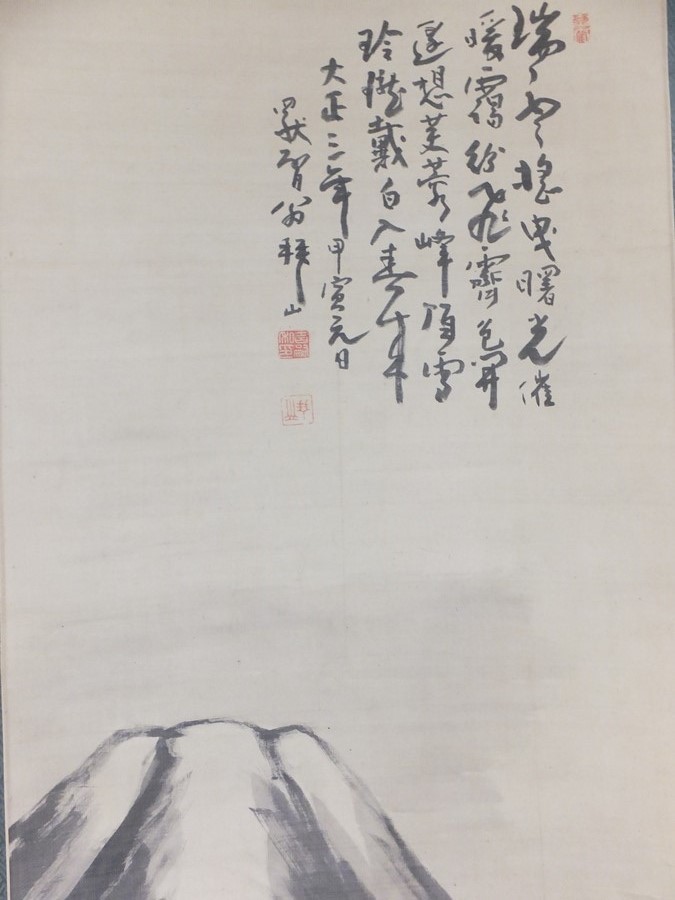 瑞雲搖曳曙光催
暖靄紛飛霽色開
遙想芙蓉峰頂雪
玲瓏戴白入春来
大正三年甲寅元日
默智翁山